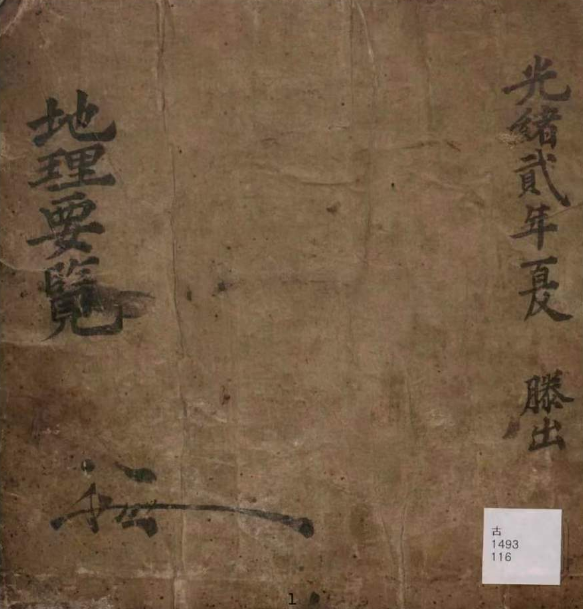 光緖貳年夏 謄出
地理要覽
古
1493
116
1